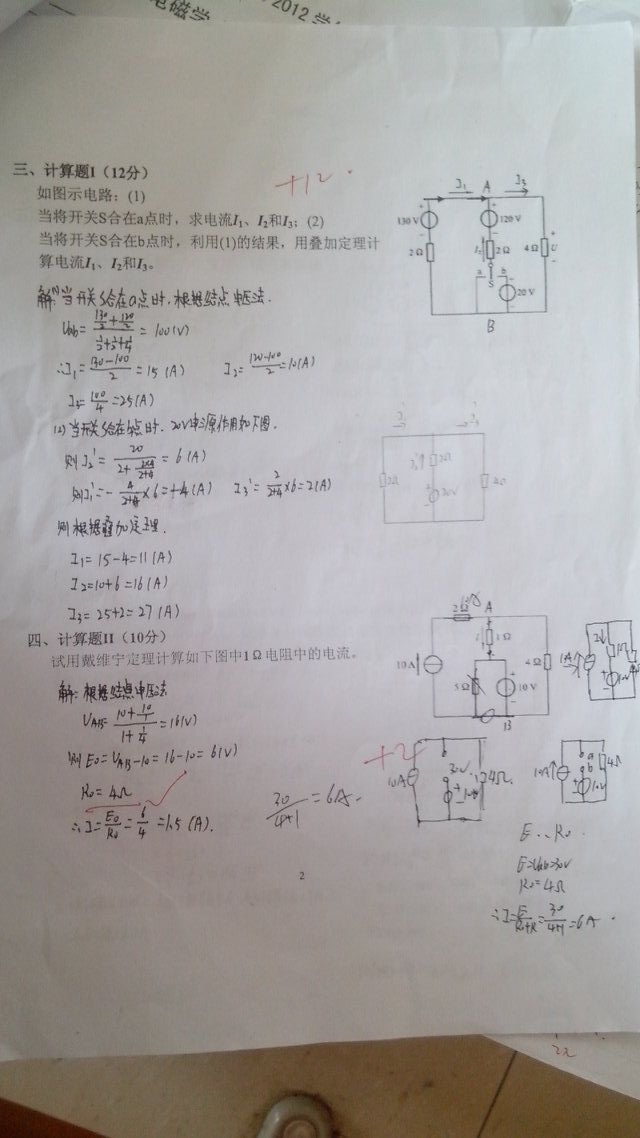 电磁学
2012 学
三、计算题I（12分）
+12
如图示电路：(1)
当将开关S合在a点时，求电流I₁、I₂和I₃；(2)
当将开关S合在b点时，利用(1)的结果，用叠加定理计
算电流I₁、I₂和I₃。
I₁ A I₃
130 V 120 V
2 Ω I₂ 2 Ω 4 Ω U
a b
S
20 V
B
解:(1)当开关S合在a点时,根据结点电压法.
Uab = (130/2 + 120/2)/(1/2+1/2+1/4) = 100(V)
∴I₁ = (130-100)/2 = 15 (A) I₂ = (120-100)/2 = 10(A)
I₃ = 100/4 = 25(A)
(2) 当开关S合在b点时, 20V电源作用如下图.
则I₂' = 20/(2+ (2×4)/(2+4)) = 6 (A)
则I₁' = - 4/(2+4) ×6 = -4(A) I₃' = 2/(2+4) ×6 = 2(A)
2Ω 2Ω 20V 4Ω
则根据叠加定理.
I₁ = 15-4 = 11 (A)
I₂ = 10+6 = 16 (A)
I₃ = 25+2 = 27 (A)
四、计算题II（10分）
试用戴维宁定理计算如下图中1 Ω 电阻中的电流。
2 Ω A
I 1 Ω
10 A 4 Ω
5 Ω 10 V
B
解: 根据结点电压法
UAB = (10 + 10/4)/(1 + 1/4) = 16(V)
则 E₀ = UAB-10 = 16-10 = 6(V)
R₀ = 4Ω
∴ I = E₀/R₀ = 6/4 = 1.5 (A).
30/(4+1) = 6A.
+2
10A 30V 4Ω
10A a b 4Ω 10V
E R₀
E=Uab=30V
R₀ = 4Ω
∴ I = E/(R₀+R) = 30/(4+1) = 6A.
2